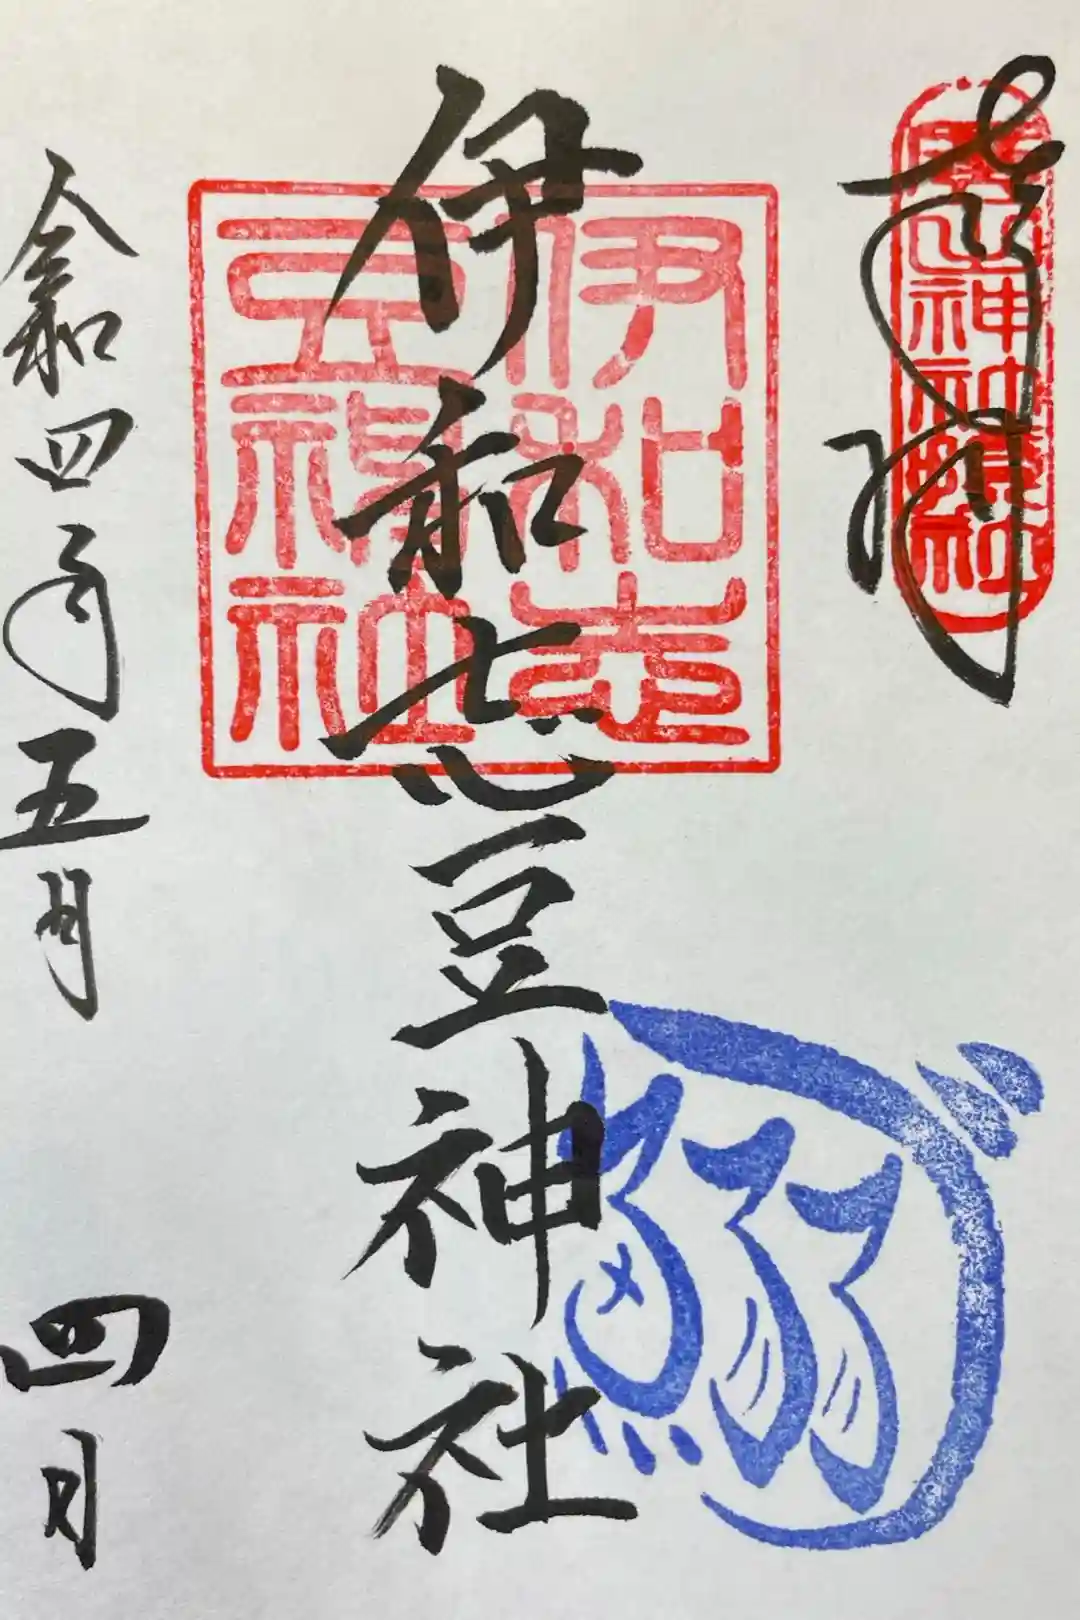 奉拝
伊和志豆神社
伊和志
豆神社
令和四年五月四日